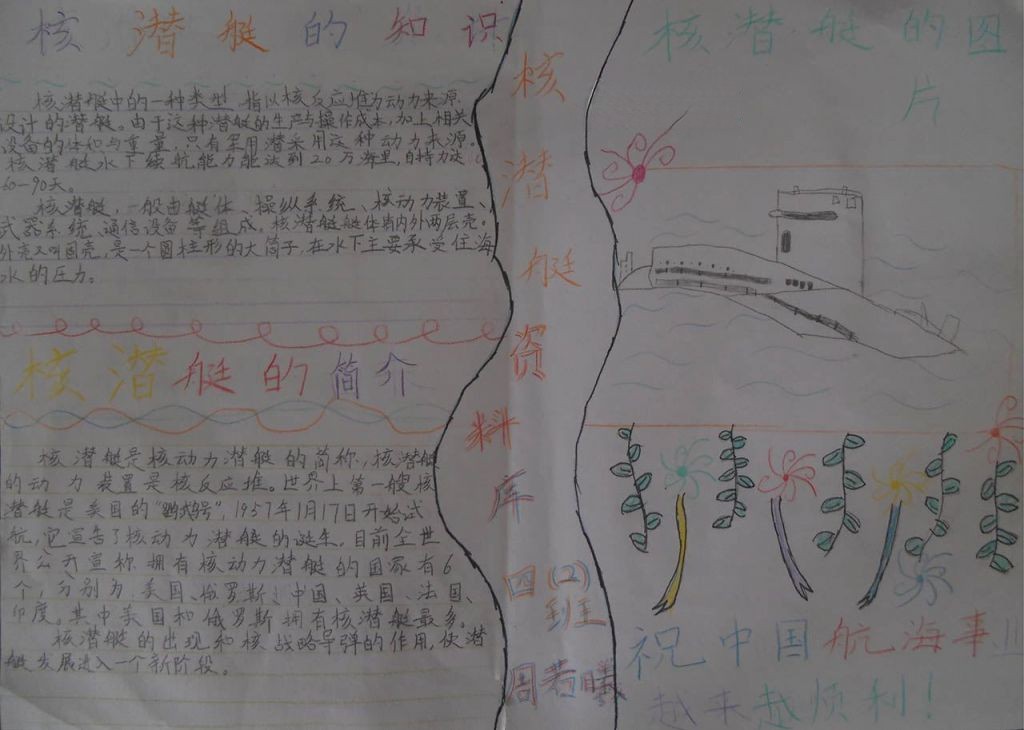 核潜艇的知识
核潜艇中的一种类型,指以核反应堆为动力来源
设计的潜艇。由于这种潜艇的生产与操作成本,加上相关
设备的体积与重量,只有军用潜采用这种动力来源。
核潜艇水下续航能力能达到20万海里,自持力达
60-90天。
核潜艇,一般由艇体、操纵系统、核动力装置、
武器系统、通信设备等组成。核潜艇艇体制内外两层壳。
外壳又叫固壳,是一个圆柱形的大筒子,在水下主要承受住海
水的压力。
核潜艇的简介
核潜艇是核动力潜艇的简称,核潜艇
的动力装置是核反应堆。世界上第一艘核
潜艇是美国的“鹦鹉号”,1957年1月17日开始试
航,它宣告了核动力潜艇的诞生。目前全世
界公开宣称拥有核动力潜艇的国家有6
个,分别为:美国、俄罗斯、中国、英国、法国、
印度。其中美国和俄罗斯拥有核潜艇最多。
核潜艇的出现和核战略导弹的作用,使潜
艇发展进入一个新阶段。
核
潜
艇
资
料
库
四(2)
班
周若曦
核潜艇的图
片
祝中国航海事业
越来越顺利!